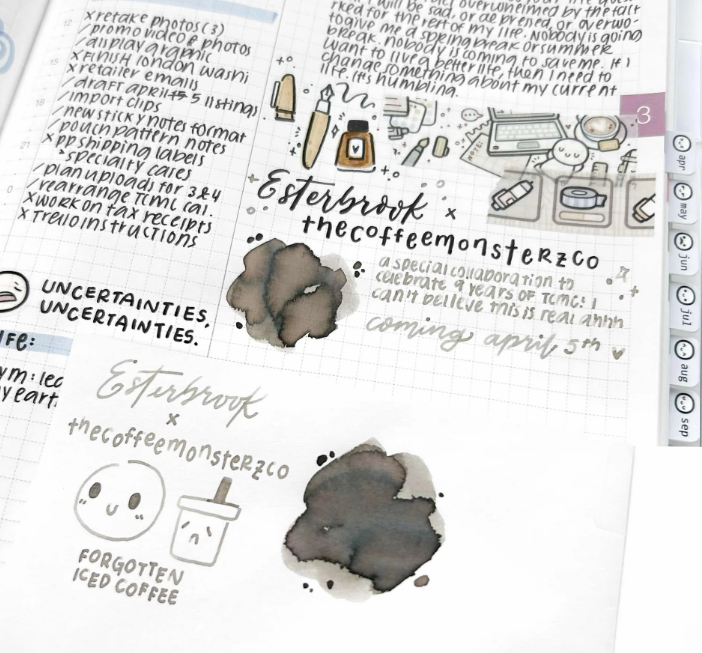 x retake photos (3)
/ promo video & photos
/ display graphic
x finish london washi
x retailer emails
/ draft april 5 listings
/ import clips
/ new sticky notes format
/ pouch pattern notes
x pp shipping labels
* specialty cares
/ plan uploads for 3 & 4
/ rearrange TCMC cal.
x work on tax receipts
x Trello instructions
UNCERTAINTIES,
UNCERTAINTIES.
IFE:
ym: lec
y eart
I will be sad, or depressed, or overwo-
rked for the rest of my life. Nobody is going
to give me a spring break or summer
break. nobody is coming to save me. If I
want to live a better life, then I need to
change something about my current
life. It's humbling.
3
Esterbrook x
thecoffeemonsterzco
a special collaboration to
celebrate 9 years of TCMC! I
can't believe this is real ahhh
coming april 5th
Esterbrook
x
thecoffeemonsterzco
FORGOTTEN
ICED COFFEE
apr
may
jun
jul
aug
sep
18
21
0